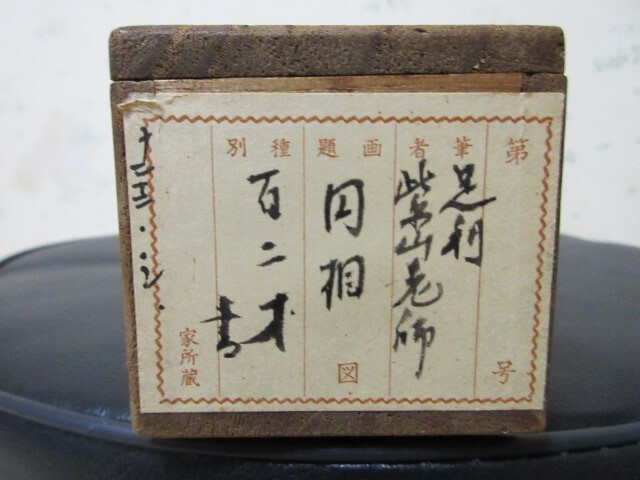 第 号
筆者
足利
紫山老師
画題
円相
図
種別
百二才
書
家所蔵